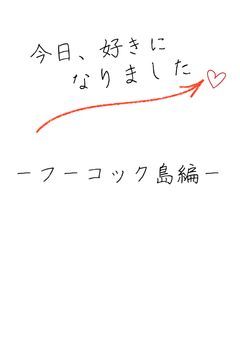 今日、好きに
なりました
－フーコック島編－